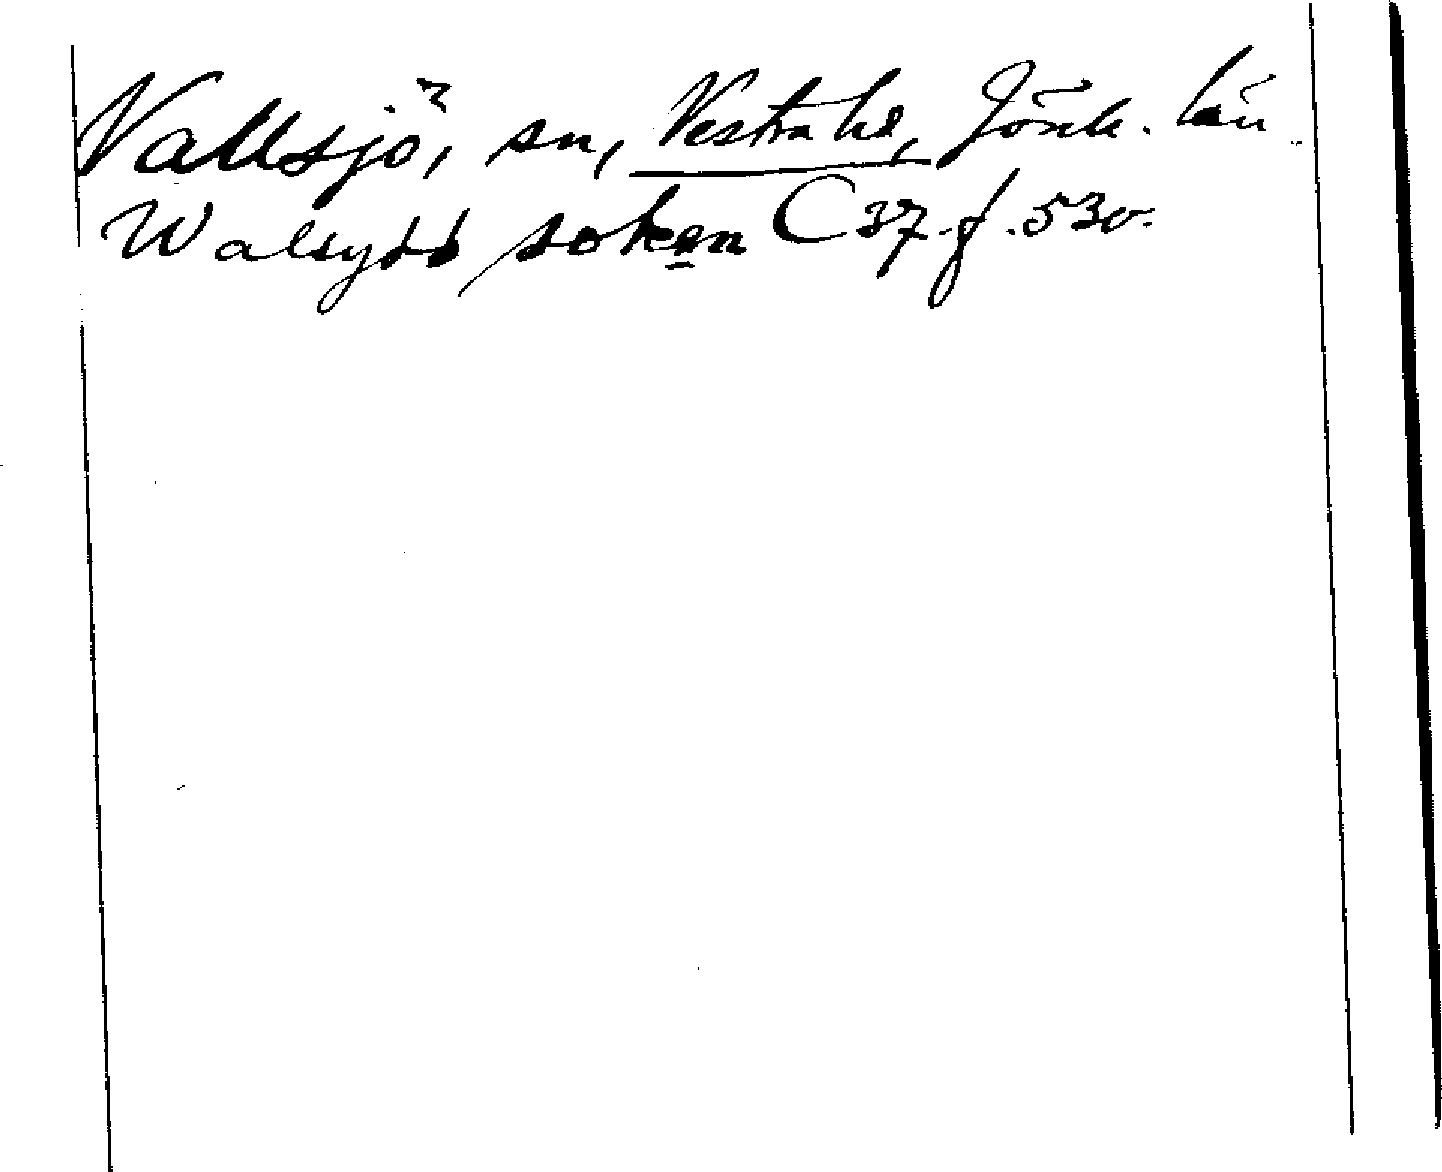 Vallsjö, sn, Vestra hd, Jönk. län
Walsyøø soken C 37. f. 530.